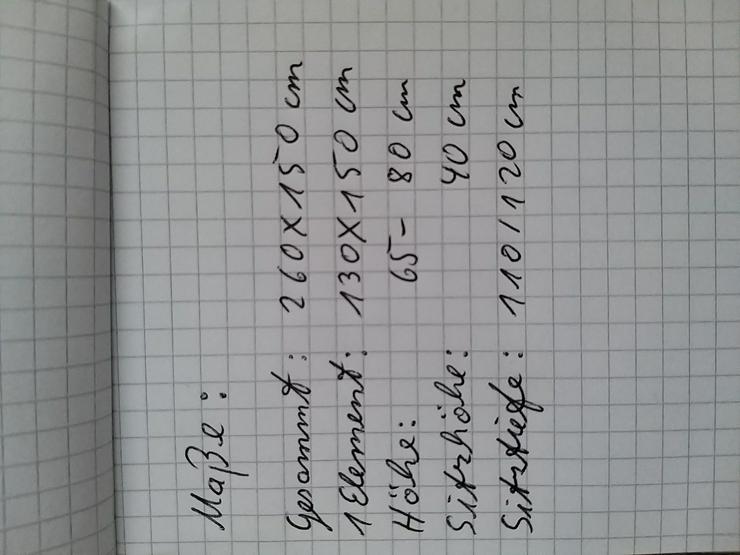 Maße:
Gesammt: 260X150 cm
1 Element: 130X150 cm
Höhe: 65 - 80 cm
Sitzhöhe: 40 cm
Sitztiefe: 110/120 cm